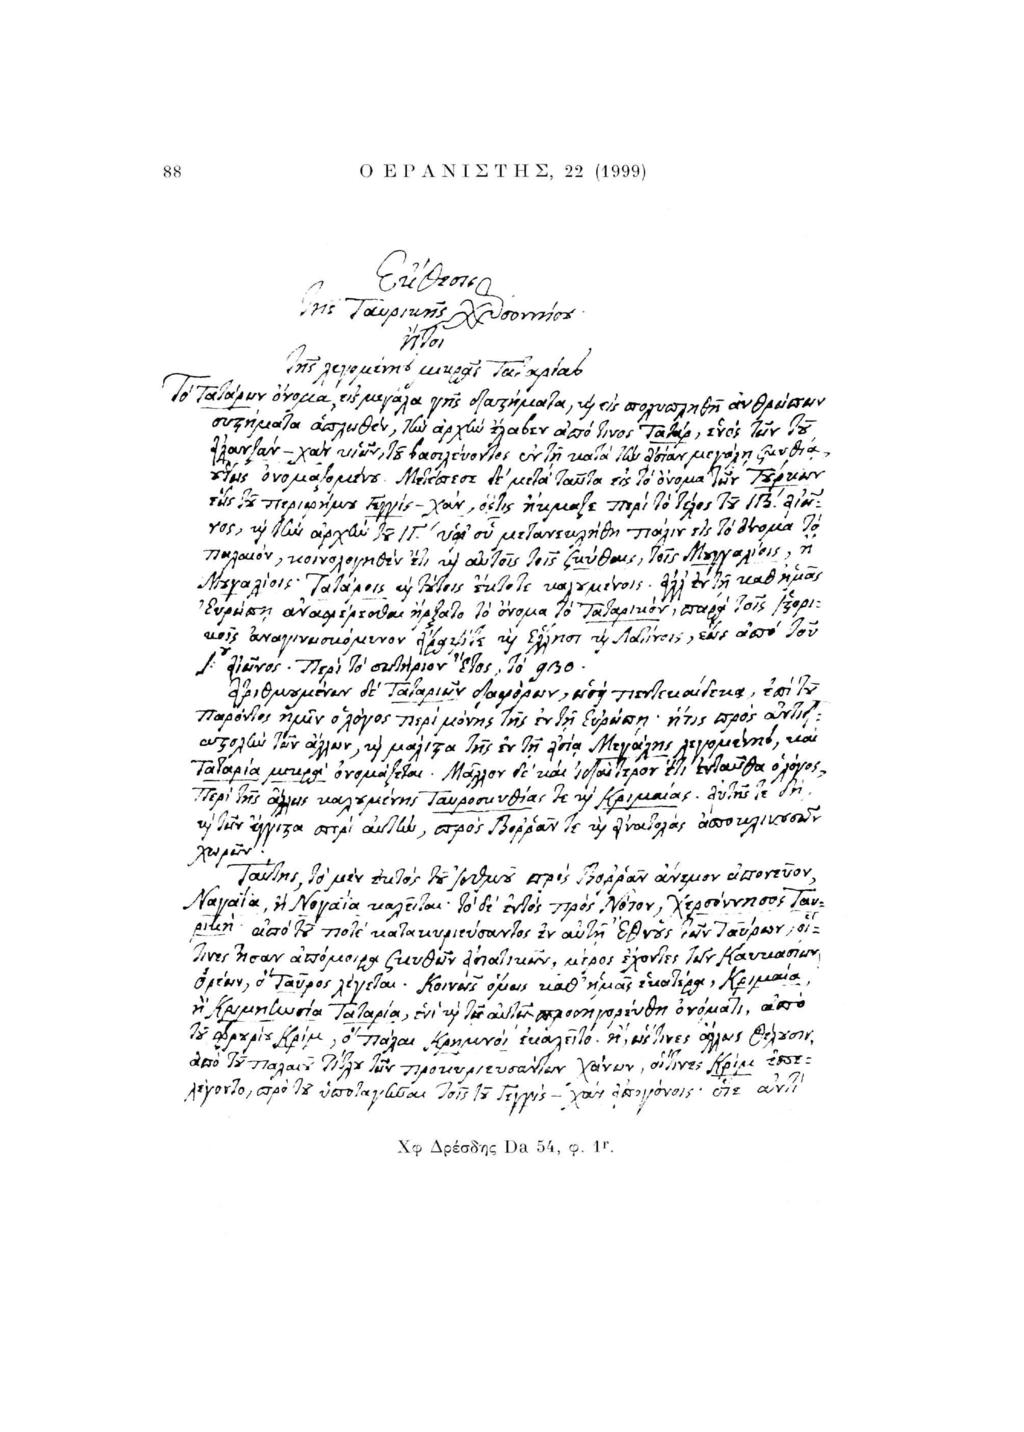 88 Ο ΕΡΑΝΙΣΤΗΣ, 22 (1999)
Ἔκθεσις
τῆς Ταυρικῆς Χερσοννήσου
ἤτοι
τῆς λεγομένης μικρᾶς Ταταρίας
Τὸ Τατάρων ὄνομα, εἰς μεγάλα γῆς διαστήματα, καὶ εἰς πολυπληθῆ ἀνθρώπων
συστήματα ἁπλωθὲν, τὴν ἀρχὴν ἔλαβεν ἀπό τινος Τατάρ, ἑνὸς τῶν τοῦ
χὰν υἱῶν, τοῦ βασιλεύοντος ἐν τῇ κατὰ τὴν ἀσίαν μεγάλῃ σκυθίᾳ,
οὕτως ὀνομαζομένου. Μετέπεσε δὲ μετὰ ταῦτα εἰς τὸ ὄνομα τῶν Τούρκων
ἕως τοῦ περιφήμου Τζγγὶς-χὰν, ὅστις ἤκμαζε περὶ τὸ τέλος τοῦ ΙΒ΄. αἰῶ-
νος, καὶ τὴν ἀρχὴν τοῦ ΙΓ΄. ὑφ' οὗ μετανεκλήθη πάλιν εἰς τὸ ὄνομα τὸ
παλαιὸν, κοινολογηθὲν ἔτι καὶ αὐτοῖς τοῖς σκύθαις, τοῖς Μουγγαλίοις, ἢ
Μουγαλίοις Τατάροις καὶ τούτοις ἔκτοτε καλουμένοις. ἀλλ' ἐν τῇ καθ' ἡμᾶς
Εὐρώπῃ ἀναφέρεσθαι ἤρξατο τὸ ὄνομα τὸ Ταταρικὸν, παρὰ τοῖς ἱστορι-
κοῖς ἀναγινωσκόμενον καὶ Ἕλλησι καὶ Λατίνοις, ἕως ἀπὸ τοῦ
Ι΄ αἰῶνος. Περὶ τὸ σωτήριον ἔτος, τὸ 930.
Ἀριθμουμένων δὲ Ταταριῶν διαφόρων, ὡσεὶ πεντεκαίδεκα, ἐπὶ τοῦ
παρόντος ἡμῖν ὁ λόγος περὶ μόνης τῆς ἐν τῇ Εὐρώπῃ· ἥτις πρὸς ἀντιδι-
αστολὴν τῶν ἄλλων, καὶ μάλιστα τῆς ἐν τῇ ἀσίᾳ Μεγάλης λεγομένης, καὶ
Ταταρία μικρὰ ὀνομάζεται. Μᾶλλον δὲ καὶ ἰδιαίτερον ἔτι ἐνταῦθα ὁ λόγος,
Περὶ τῆς ἄλλως καλουμένης Ταυροσκυθίας τε καὶ Κριμαίας. αὐτῆς τε δὴ,
καὶ τῶν ἔγγιστα περὶ αὐτὴν, πρὸς Βορρᾶν τε καὶ ἀνατολὰς ἀποκλινουσῶν
χωρῶν.
Ταύτης, τὸ μὲν ἐκτὸς τοῦ ἰσθμοῦ πρὸς Βορρᾶν ἄνεμον ἀπονεῦον,
Ναγαΐα, ἢ Νογαΐα καλεῖται· τὸ δὲ ἐντὸς πρὸς Νότον, Χερσόννησος Ταυ-
ρική· ἀπὸ τοῦ ποτὲ κατακυριεύσαντος ἐν αὐτῇ Ἔθνους τῶν Ταύρων, οἵ-
τινες ἦσαν ἀπόμοιρα σκυθῶν ἀσιατικῶν, μέρος ἔχοντες τῶν Καυκασίων
ὀρέων, ὃ Ταῦρος λέγεται. Κοινῶς ὅμως καθ' ἡμᾶς ἑκατέρα, Κριμαία,
ἢ Ταταρία, ἑνὶ καὶ τῷ αὐτῷ προσηγορεύθη ὀνόματι, ἀπὸ
τοῦ φρουρίου Κρὶμ, ὃ πάλαι Κρημνοὶ ἐκαλεῖτο. ἢ, ὥς τινες ἄλλως θέλουσιν,
ἀπὸ τοῦ παλαιοῦ τίτλου τῶν προκυριευσάντων χάνων, οἵτινες Κρὶμ ἐπε-
λέγοντο, πρὸ τοῦ ὑποταγῆναι τοῖς τοῦ Τζγγὶς-χὰν ἀπογόνοις· ὅτε ἀντὶ
Χφ Δρέσδης Da 54, φ. 1r.